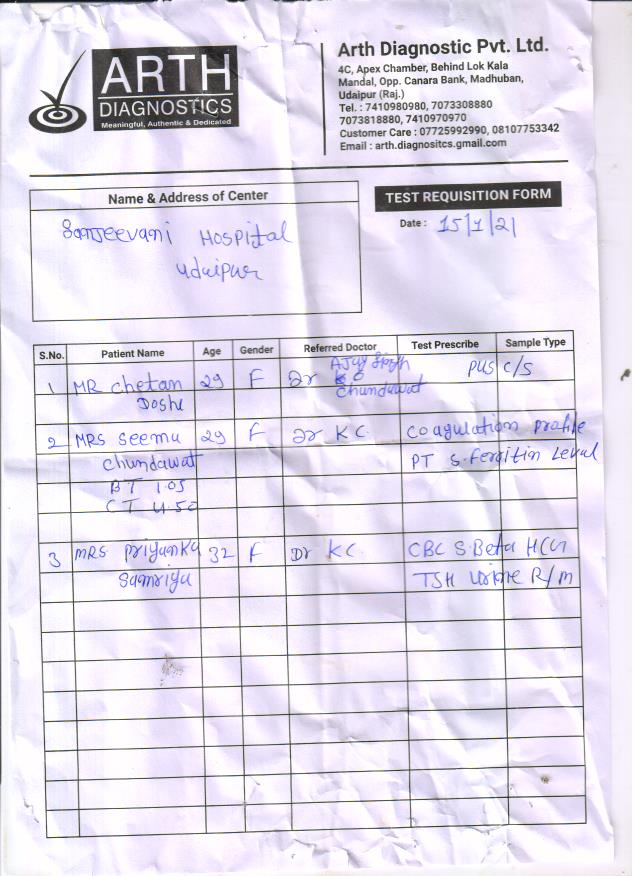 ARTH
DIAGNOSTICS
Meaningful, Authentic & Dedicated
Arth Diagnostic Pvt. Ltd.
4C, Apex Chamber, Behind Lok Kala
Mandal, Opp. Canara Bank, Madhuban,
Udaipur (Raj.)
Tel. : 7410980980, 7073308880
7073818880, 7410970970
Customer Care : 07725992990, 08107753342
Email : arth.diagnositcs.gmail.com
Name & Address of Center
Sanjeevani Hospital
Udaipur
TEST REQUISITION FORM
Date : 15/1/21
S.No. Patient Name Age Gender Referred Doctor Test Prescribe Sample Type
1 MR Chetan 29 F Dr Ajay Singh PUS C/S
Doshi Chundawat
2 MRS Seema 29 F Dr KC. Coagulation Profile
Chundawat PT S.Ferritin Leval
BT 1.05
CT 4.50
3 MRS Priyanka 32 F Dr KC. CBC S.Beta HCG
Samriya TSH Urine R/m